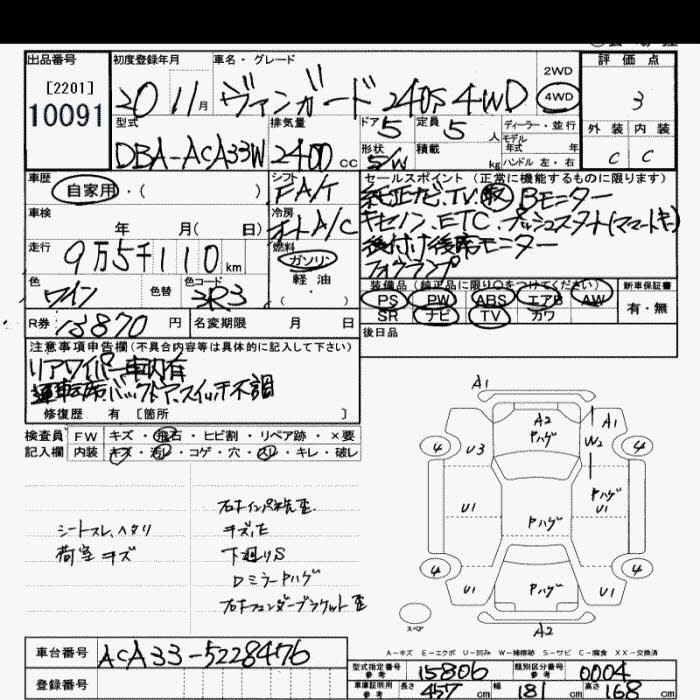 出品番号 初度登録年月 車名・グレード 2WD 評価点
[2201] 10091 20 11月 ヴァンガード 240S 4WD 4WD 3
型式 排気量 ドア 5 定員 5 人 ディーラー・並行 外装 内装
モデル年式 年
DBA-ACA33W 2400 CC 形状 S/W 積載 kg ハンドル 左・右 C C
車歴 シフト セールスポイント (正常に機能するものに限ります)
自家用・( ) FA/T 純正ナビ、TV、Bモニター
車検 冷房 キセノン、ETC、プッシュスタート(スマートキー)
年 月( 日) オートA/C 後付け後席モニター
走行 燃料 フォグランプ
9万5千110km ガソリン
色 色替 色コード 軽油 装備品 (純正品に限り○をつけてください) 新車保証書
ワイン 3R3 ・( ) PS PW ABS エアB AW 有・無
SR ナビ TV カワ
R券 13870円 名変期限 月 日 後日品
注意事項申告欄(不具合内容等は具体的に記入して下さい)
リアワイパー車内有
運転席バックドアスイッチ不調
修復歴 有 [箇所 ]
検査員 FW キズ・飛石・ヒビ割・リペア跡・×要
記入欄 内装 キズ・汚レ・コゲ・穴・スレ・キレ・破レ
シートスレ、ヘタリ
荷室キズ
キズ、E
下廻りS
Dミラーハゲ
A1
A2 ハゲ A1
U3 W2
4 4
U1 ハゲ U1
ハゲ
4 4
U1 ハゲ U1
スペア
A2
A-キズ E-エクボ U-凹み W-補修跡 S-サビ C-腐食 XX-交換済
車台番号 ACA33-5228476
登録番号
型式指定番号 参考 15806 類別区分番号 参考 0004
車庫証明用 参考 長さ 457cm 幅 181cm 高さ 168cm